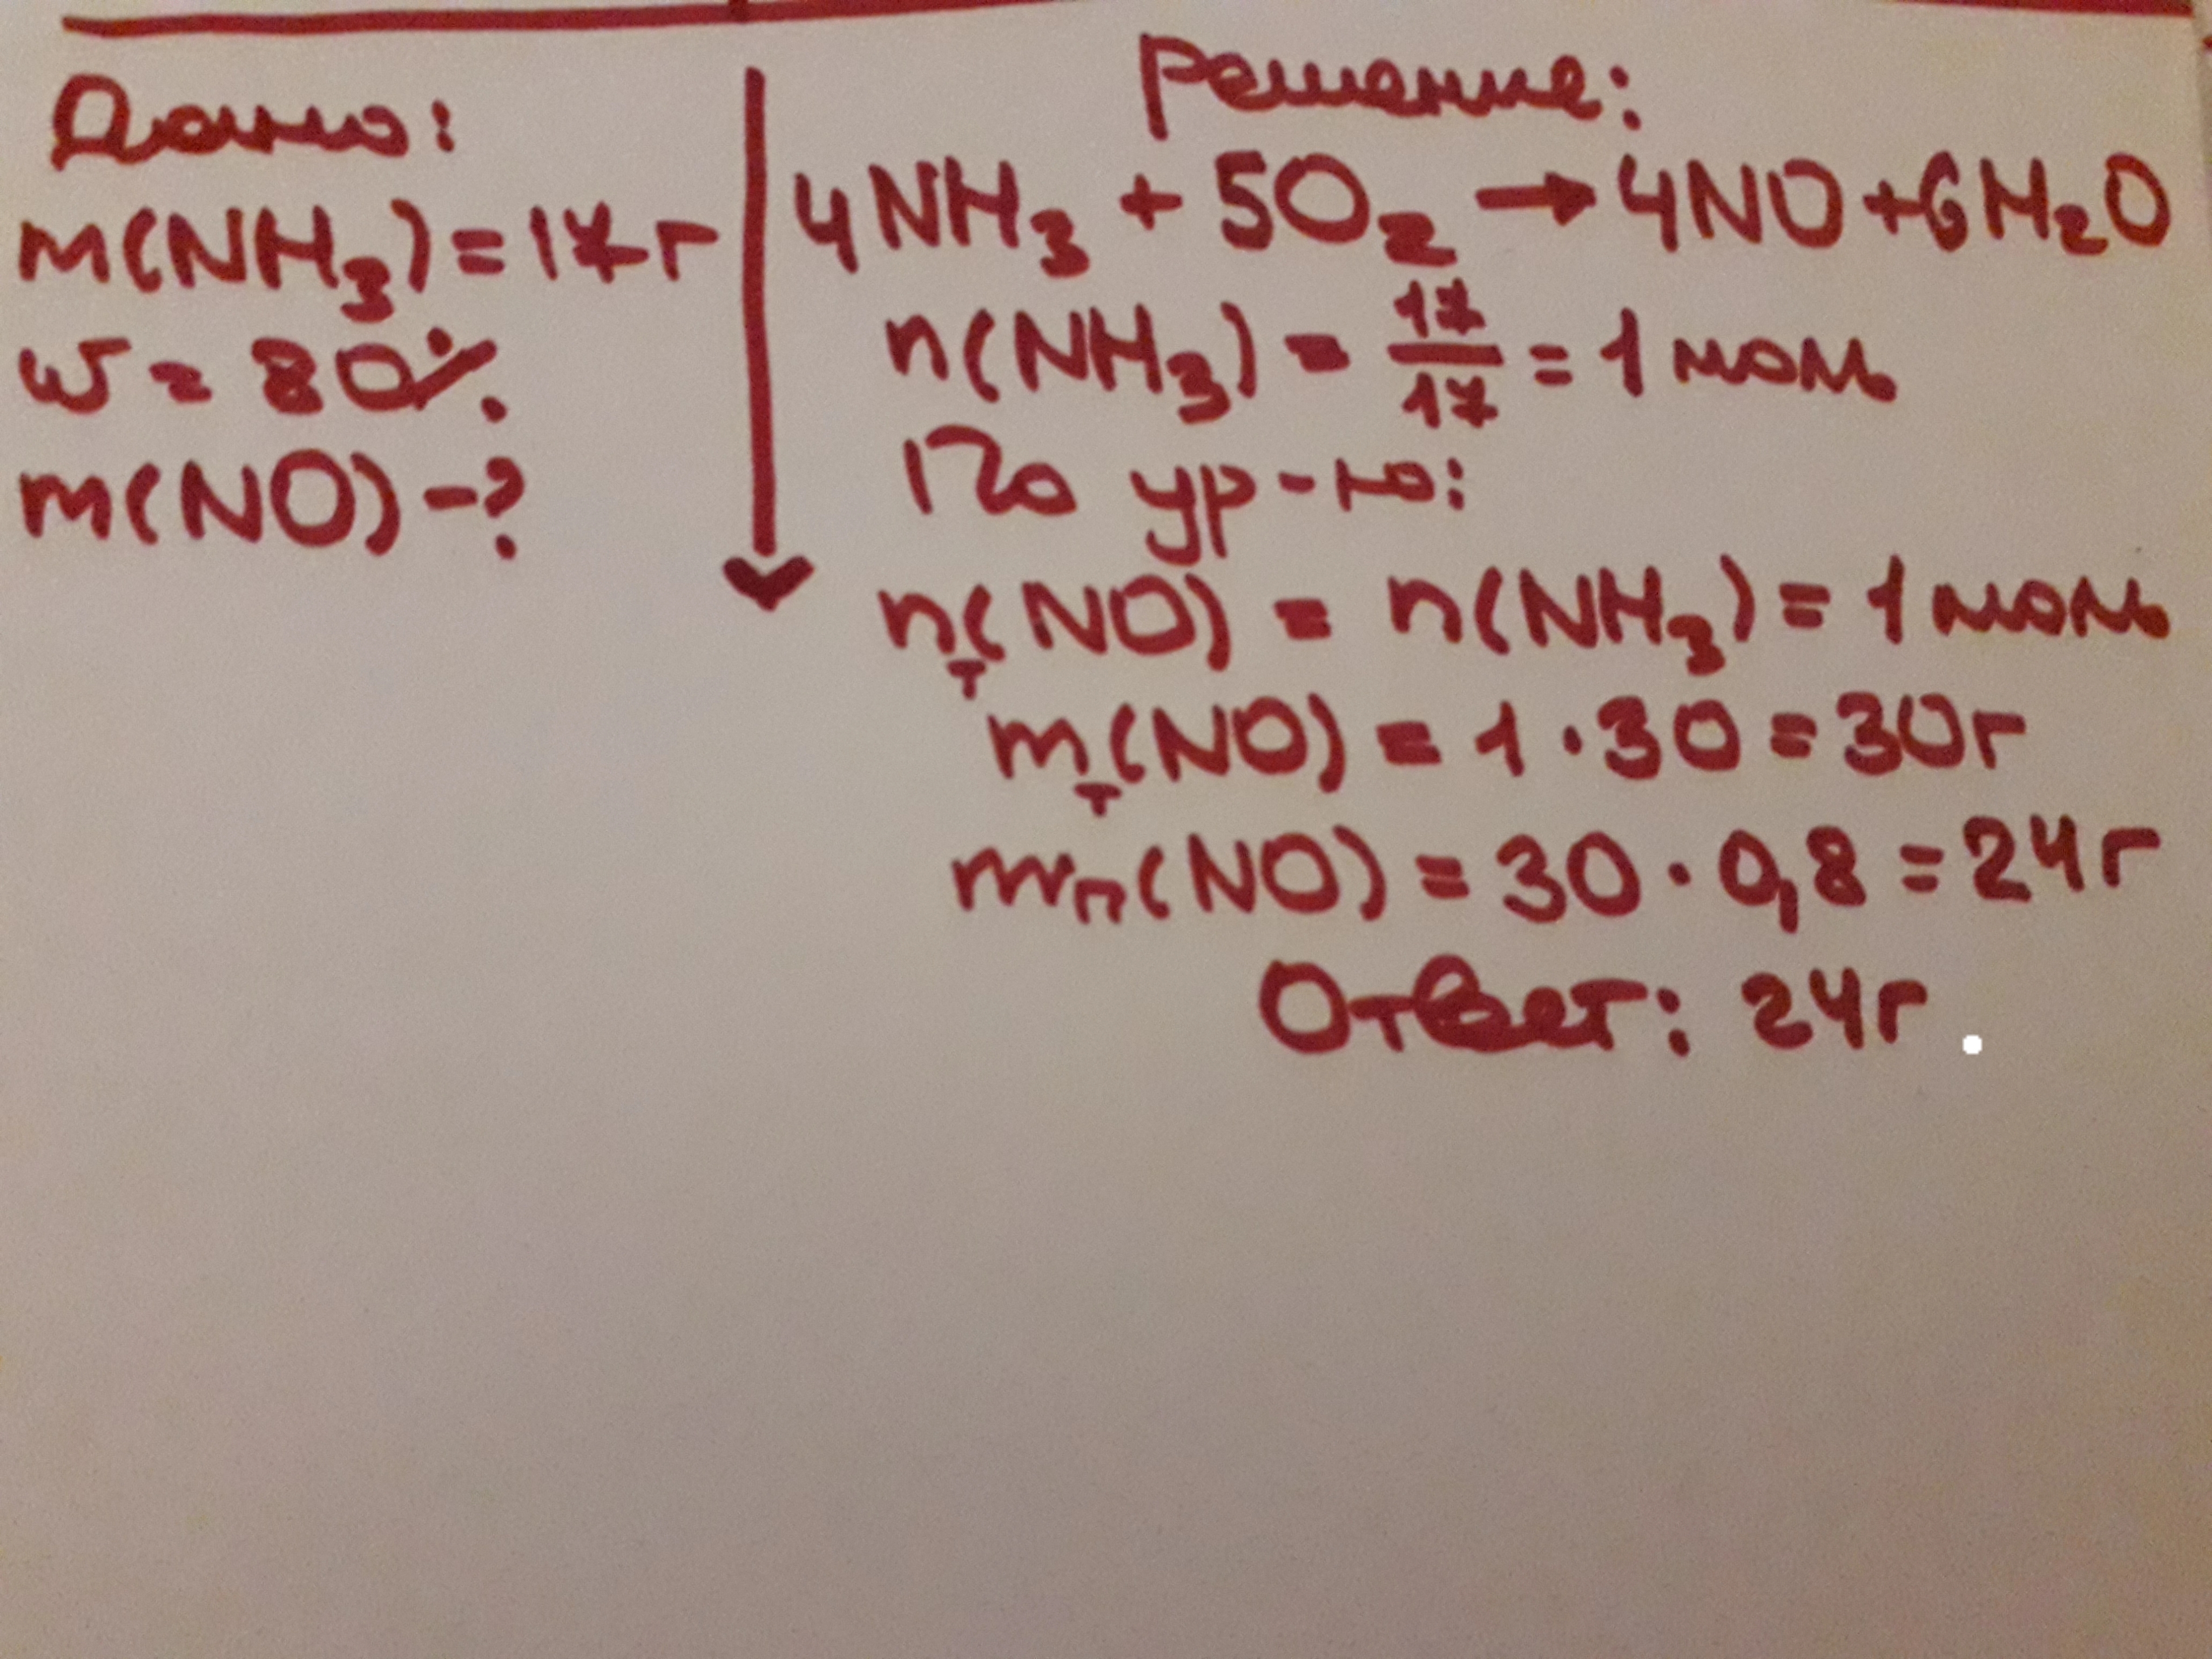 Дано:
m(NH₃)=17г
ω = 80%
m(NO)-?
Решение:
4NH₃ + 5O₂ → 4NO+6H₂O
n(NH₃) = 17/17 = 1 моль
По ур-ю:
nт(NO) = n(NH₃) = 1 моль
mт(NO) = 1 · 30 = 30г
mп(NO) = 30 · 0,8 = 24г
Ответ: 24г.